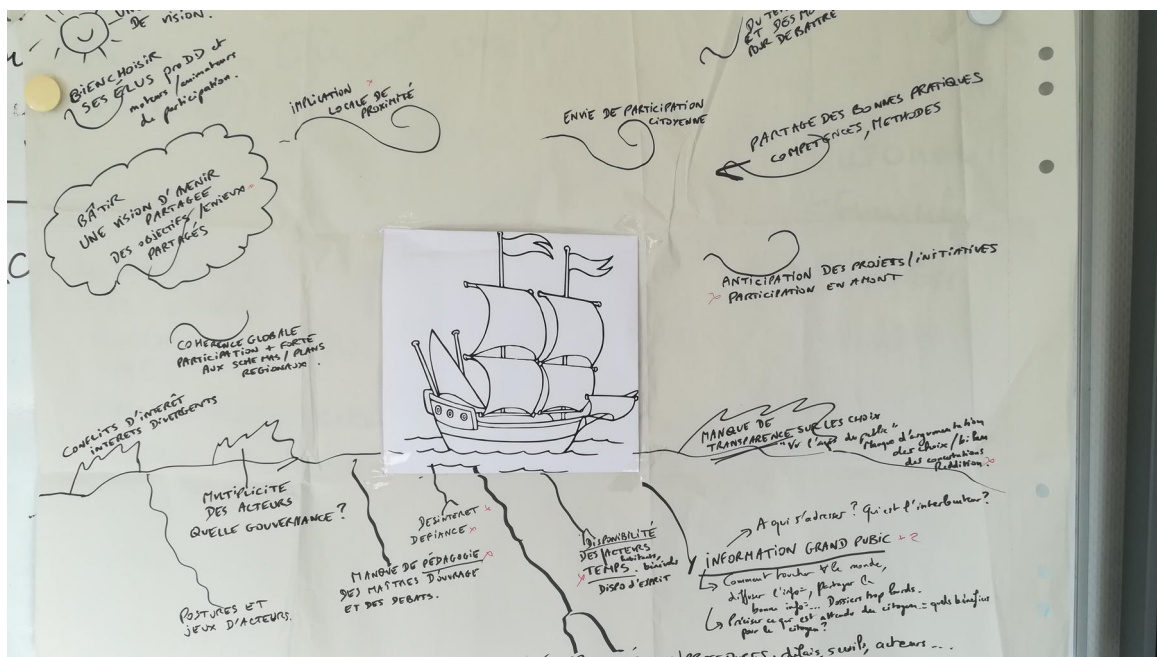 DE VISION.
BIEN CHOISIR
SES ÉLUS pro DD et
moteurs/animateurs
de participation.
IMPLICATION
LOCALE DE
PROXIMITÉ
ENVIE DE PARTICIPATION
CITOYENNE
DU TEMPS
ET DES MO
POUR DÉBATTRE
PARTAGE DES BONNES PRATIQUES
COMPETENCES, METHODES
BÂTIR
UNE VISION D'AVENIR
PARTAGEE
DES OBJECTIFS/ENJEUX
PARTAGÉS
ANTICIPATION DES PROJETS/INITIATIVES
PARTICIPATION EN AMONT
COHERENCE GLOBALE
PARTICIPATION + FORTE
AUX SCHEMAS/PLANS
REGIONAUX.
CONFLITS D'INTERÊT
INTERETS DIVERGENTS
MANQUE DE
TRANSPARENCE SUR LES CHOIX
"Vu l'avis du public"
Manque d'argumentation
des choix/bilan
des concertations
Reddition
MULTIPLICITE
DES ACTEURS
QUELLE GOUVERNANCE?
DESINTERET
DEFIANCE
DISPONIBILITÉ
DES ACTEURS
habitants,
TEMPS. bénévoles
DISPO D'ESPRIT
A qui s'adresser? Qui est l'interlocuteur?
INFORMATION GRAND PUBIC +2
Comment toucher le monde,
diffuser l'info-, partager la
bonne info-... Dossiers trop lourds.
Préciser ce qui est attendu du citoyen = quels bénéfices
pour le citoyen?
MANQUE DE PÉDAGOGIE
DES MAÎTRES D'OUVRAGE
ET DES DEBATS.
POSTURES ET
JEUX D'ACTEURS.
délais, seuils, acteurs...